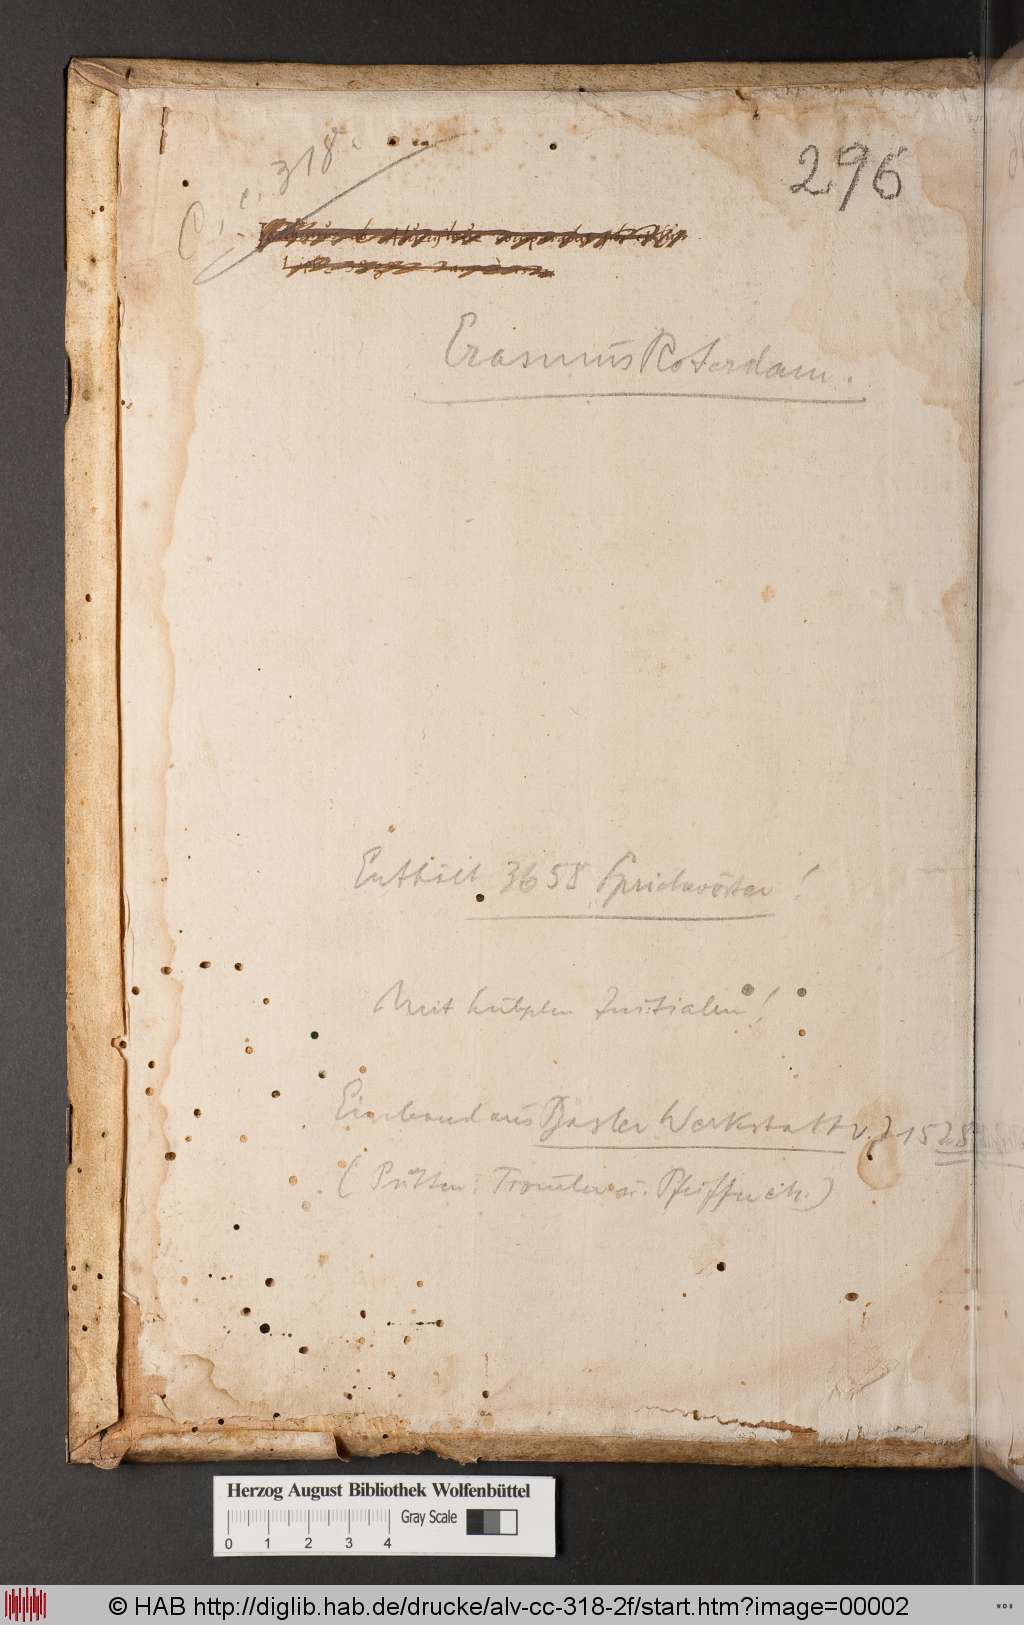 C. c. 318.
296
Erasmus Roterdam.
Enthält 3658 Sprichwörter!
Mit hübschen Initialen!
Einband aus Basler Werkstatt v. J 1528
(Putten: Tromler u.
Herzog August Bibliothek Wolfenbüttel
Gray Scale
0 1 2 3 4
© HAB http://diglib.hab.de/drucke/alv-cc-318-2f/start.htm?image=00002